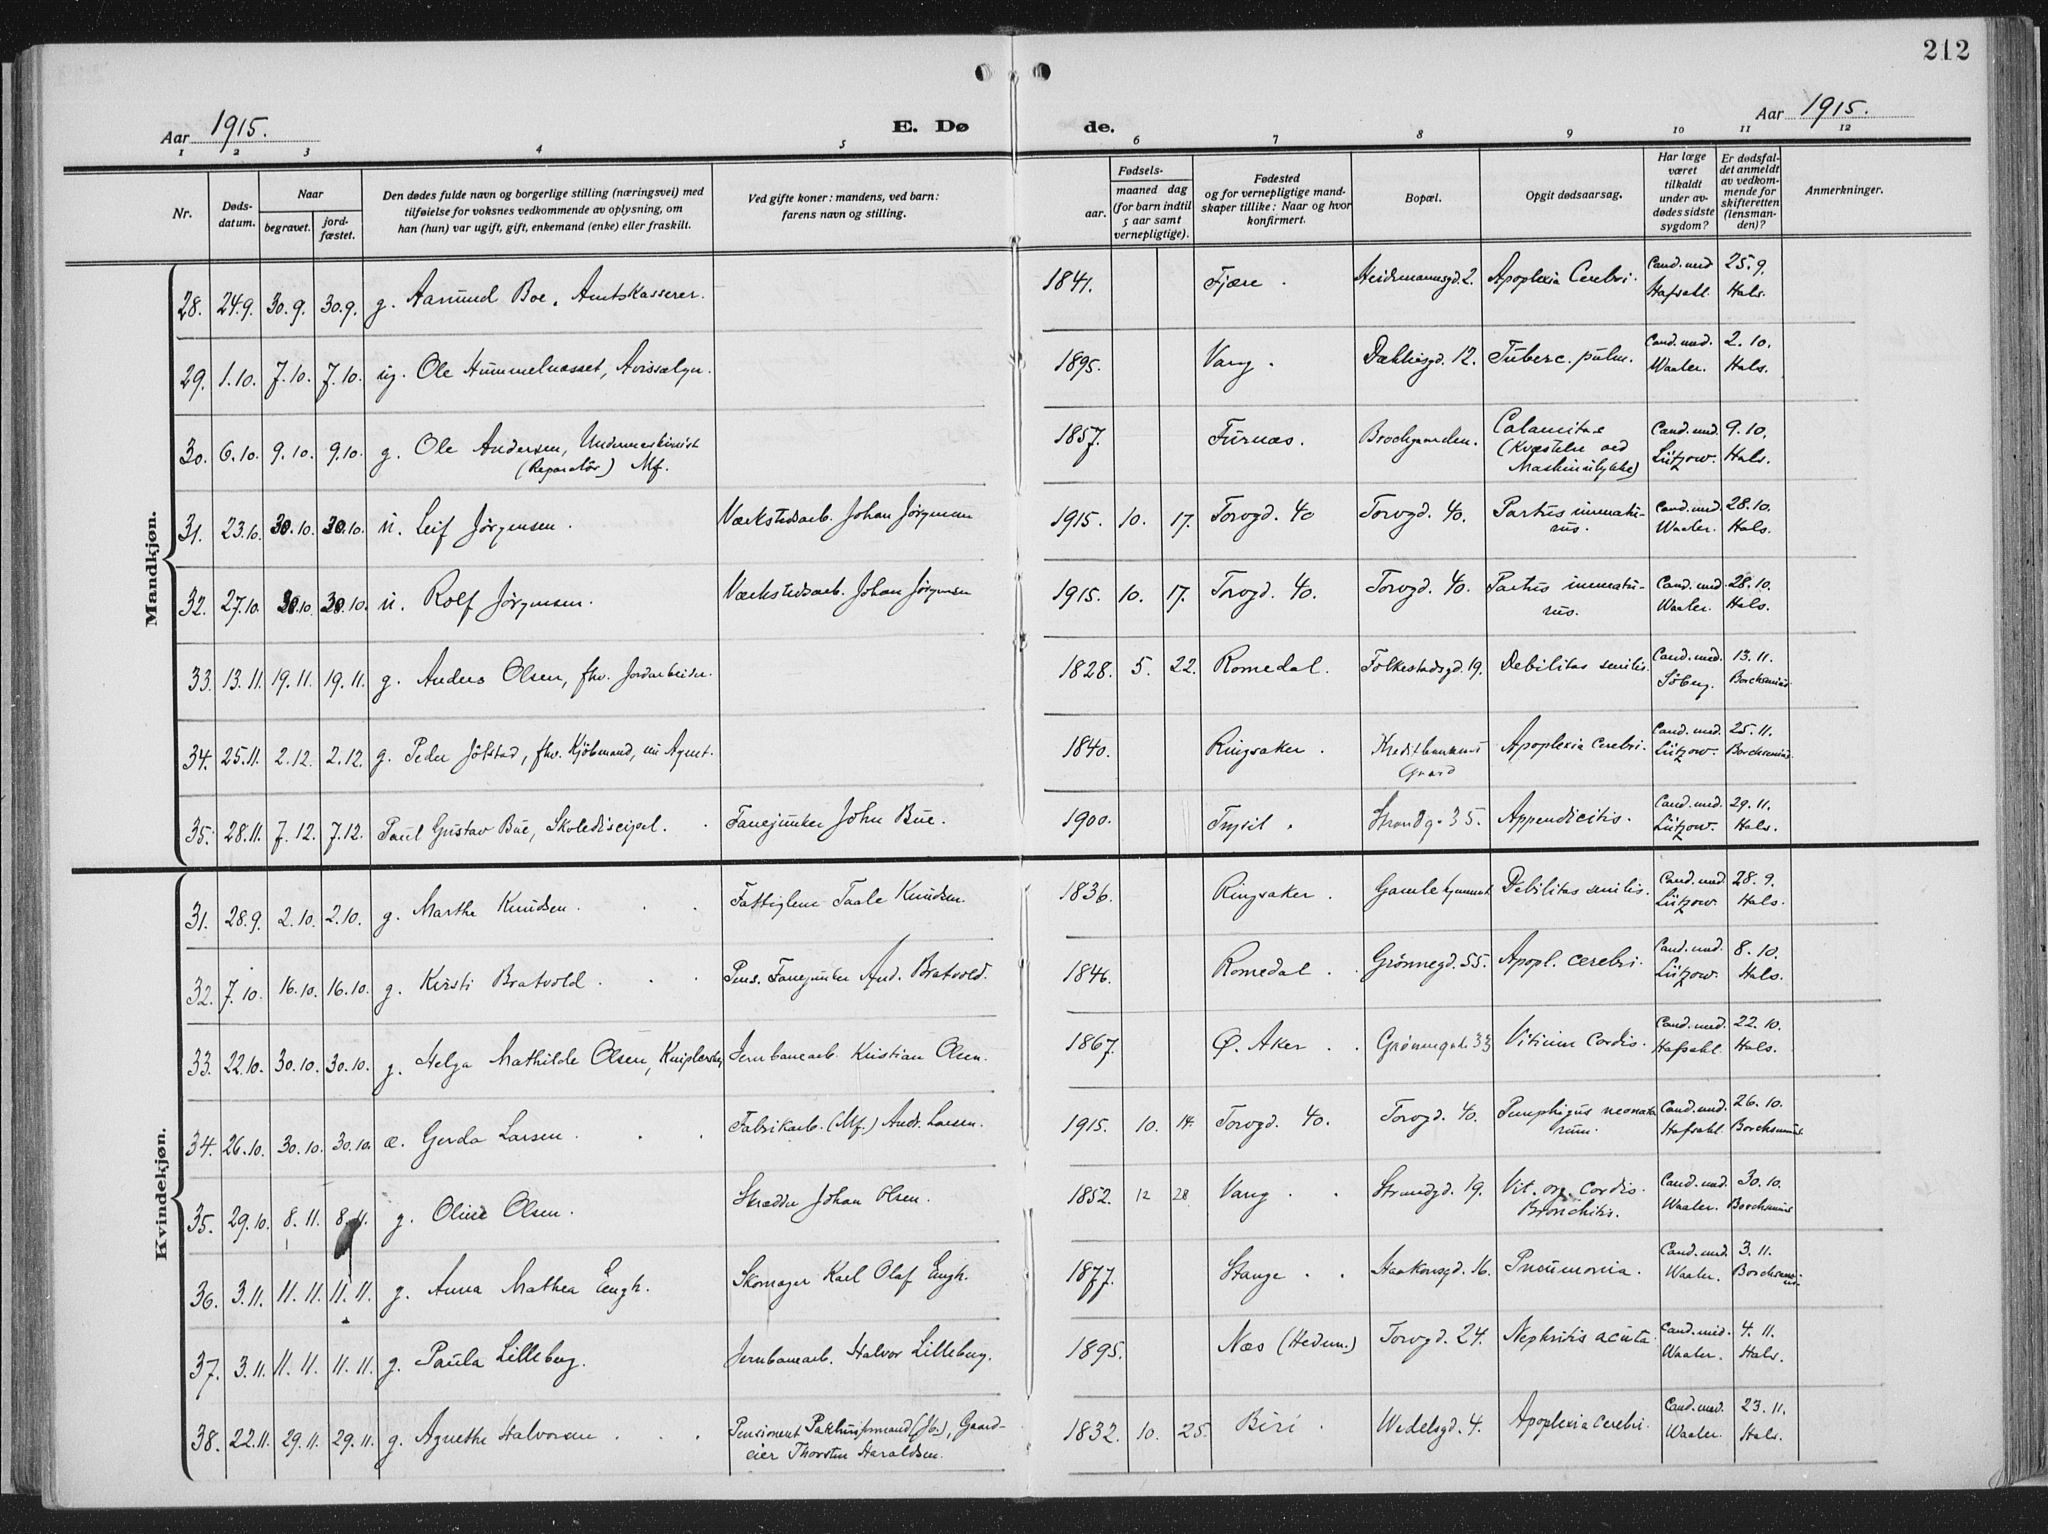 212
Aar 1915. E. Døde. Aar 1915.
1 2 3 4 5 6 7 8 9 10 11 12
Nr. | Døds-datum. | Naar begravet. | jord-fæstet. | Den dødes fulde navn og borgerlige stilling (næringsvei) med tilføielse for voksnes vedkommende av oplysning, om han (hun) var ugift, gift, enkemand (enke) eller fraskilt. | Ved gifte koner: mandens, ved barn: farens navn og stilling. | Fødsels- aar. | maaned dag (for barn indtil 5 aar samt vernepligtige). | Fødested og for vernepligtige mandskaper tillike: Naar og hvor konfirmert. | Bopæl. | Opgit dødsaarsag. | Har læge været tilkaldt under avdødes sidste sygdom? | Er dødsfaldet anmeldt av vedkommende for skifteretten (lensmanden)? | Anmerkninger.
Mandkjøn.
28. 24.9. 30.9. 30.9. g. Aamund Boe, Amtskasserer. 1841. Fjære. Heidemannsgd. 2. Apoplexia Cerebri. Cand. med Hafsahl. 25.9. Hals.
29. 1.10. 7.10. 7.10. ug. Ole Hummelnæsset, Avissælger. 1895. Vang. Dækkesgd. 12. Tuberc. pulm. Cand. med. Waaler. 2.10. Hals.
30. 6.10. 9.10. 9.10. g. Ole Andersen, Undermaskinist (Reparatör) Mf. 1857. Furnæs. Brochgaarden. Calamitas (Kvæstelse ved Maskinulykke) Cand. med Lützow. 9.10. Hals.
31. 23.10. 30.10. 30.10. u. Leif Jørgensen. Værkstedsarb. Johan Jørgensen 1915. 10. 17. Torvgd. 40 Torvgd. 40. Partus immaturus. Cand. med Waaler. 28.10. Hals.
32. 27.10. 30.10. 30.10. u. Rolf Jørgensen. Værkstedsarb. Johan Jørgensen 1915. 10. 17. Torvgd. 40. Torvgd. 40. Partus immaturus. Cand. med. Waaler. 28.10. Hals.
33. 13.11. 19.11. 19.11. g. Anders Olsen, fhv. Jordarbeider. 1828. 5. 22. Romedal. Folkestadsgd. 19. Debilitas senilis. Cand. med. Söberg. 13.11. Borchsenius
34. 25.11. 2.12. 2.12. g. Peder Jölstad, fhv. Kjöbmand, nu Agent. 1840. Ringsaker. Kreditbankens Gaard Apoplexia cerebri. Cand. med. Lützow. 25.11. Borchsenius.
35. 28.11. 7.12. 7.12. Paul Gustav Bue, Skolediscipel. Fanejunker John Bue. 1900. Trysil. Strandg. 35. Appendicitis. Cand. med. Lützow. 29.11. Hals.
Kvindekjøn.
31. 28.9. 2.10. 2.10. g. Marthe Knudsen. Fattiglem Taale Knudsen. 1836. Ringsaker. Gamle Debilitas senilis. Cand. med Lützow. 28.9. Hals.
32. 7.10. 16.10. 16.10. g. Kirsti Bratvold. Pens. Fanejunker And. Bratvold. 1846. Romedal. Grönnegd. 55. Apopl. cerebri. Cand. med. Lützow. 8.10. Hals.
33. 22.10. 30.10. 30.10. g. Helga Mathilde Olsen, Jernbanearb. Kristian Olsen. 1867. Ø. Aker. Grönnegade 33 Vitium Cordis. Cand. med. Hafsahl. 22.10. Hals.
34. 26.10. 30.10. 30.10. æ. Gerda Larsen. Fabrikarb. (Mf.) Andr. Larsen. 1915. 10. 14. Torvgd. 40. Torvgd. 40. Pemphigus neonatorum. Cand. med. Hafsahl. 26.10. Borchsenius.
35. 29.10. 8.11. 8.11. g. Oline Olsen. Skrædder Johan Olsen. 1852. 12 28 Vang. Strandgd. 19. Vit. org. cordis. Bronchitis. Cand. med. Waaler. 30.10. Borchsenius
36. 3.11. 11.11. 11.11. g. Anna Mathea Engh. Skomager Karl Olaf Engh. 1877. Stange. Haakonsgd. 16. Pneumonia. Cand. med. Waaler. 3.11. Borchsenius
37. 3.11. 11.11. 11.11. g. Paula Lilleberg. Jernbanearb. Halvor Lilleberg. 1895. Næs (Hedem.) Torvgd. 24. Nephritis acuta. Cand. med. Waaler. 4.11. Hals.
38. 22.11. 29.11. 29.11. g. Agnethe Halvorsen Pensionert Pakhusformand (Jb.), Gaardeier Thorsten Haraldsen. 1832. 10. 25. Biri. Wedelsgd. 4. Apoplexia cerebri. Cand. med. Waaler. 23.11. Hals.